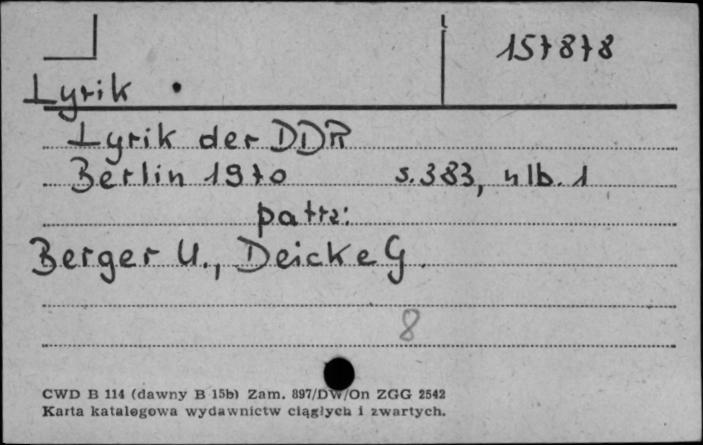 157878
Lyrik
Lyrik der DDR
Berlin 1970 s. 383, nlb. 1
patrz:
Berger U., Deicke G.
8
CWD B 114 (dawny B 15b) Zam. 897/DW/On ZGG 2542
Karta katalogowa wydawnictw ciągłych i zwartych.